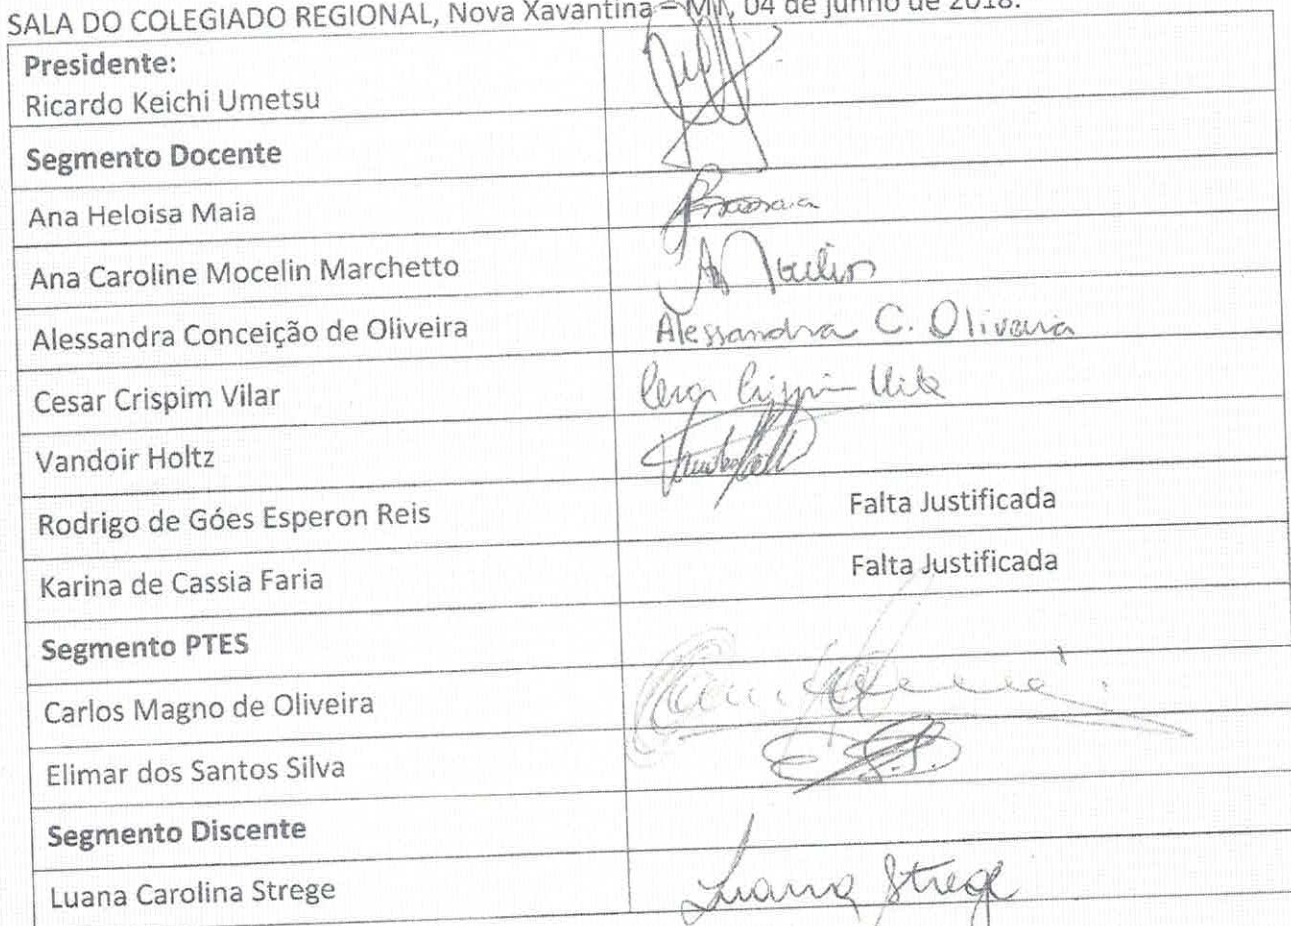 SALA DO COLEGIADO REGIONAL, Nova Xavantina – MT, 04 de junho de 2018.
Presidente:
Ricardo Keichi Umetsu
Segmento Docente
Ana Heloisa Maia
Ana Caroline Mocelin Marchetto
Alessandra Conceição de Oliveira Alessandra C. Oliveira
Cesar Crispim Vilar
Vandoir Holtz
Rodrigo de Góes Esperon Reis Falta Justificada
Karina de Cassia Faria Falta Justificada
Segmento PTES
Carlos Magno de Oliveira
Elimar dos Santos Silva
Segmento Discente
Luana Carolina Strege Luana Strege